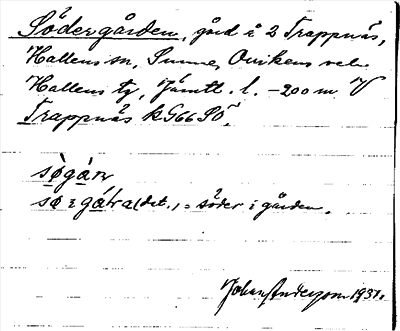 Södergården, gård i 2 Trappnäs,
Hallens sn, Sunne, Ovikens och
Hallens tg, Jämtl. l. -200 m V
Trappnäs k 966 SÖ.
sø̀gárn
sø i gáɽa (det.) = söder i gården.
Johan Anderson 1931.